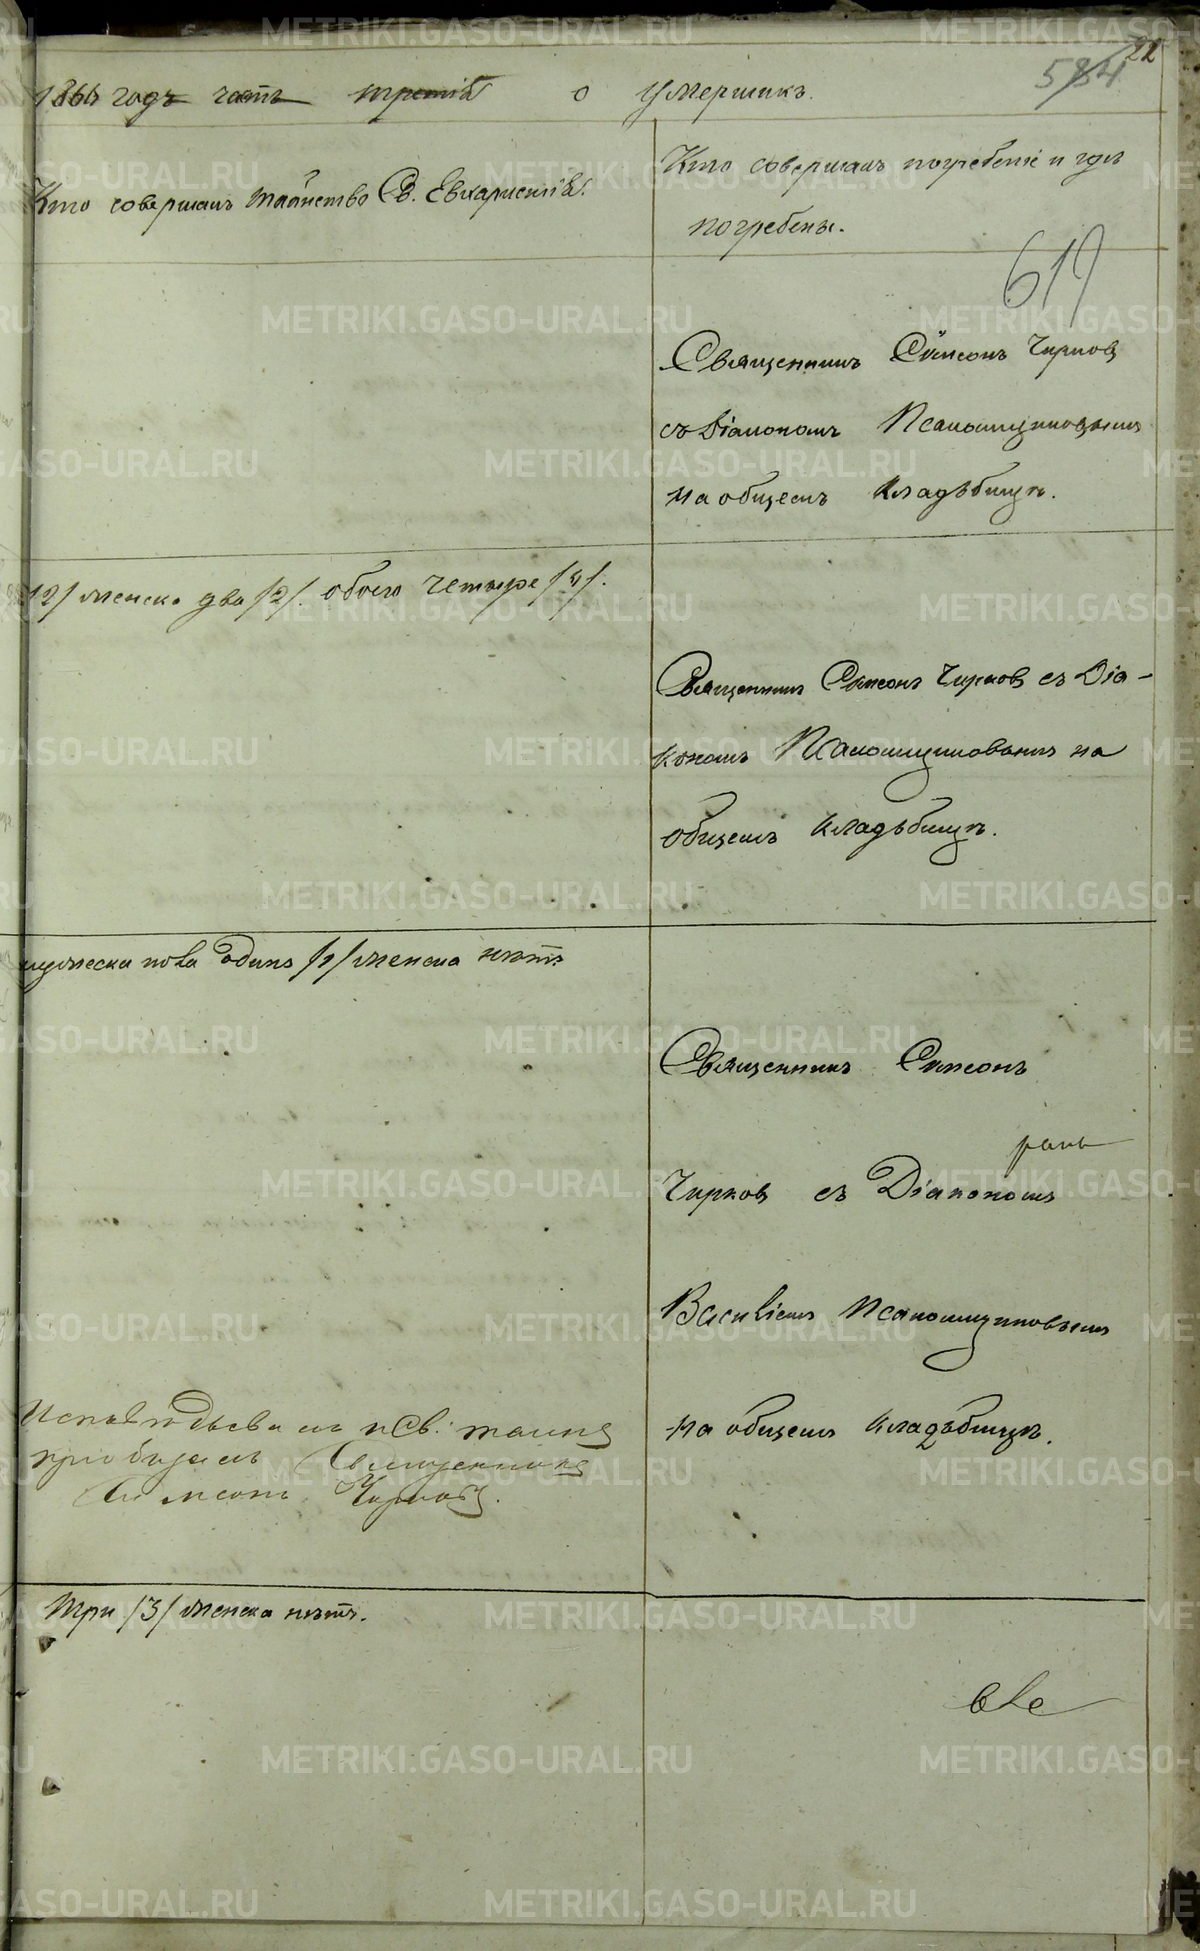 22
584
1866 годъ часть третія о умершихъ.
Кто совершалъ таинство Св. Евхаристіи.
Кто совершалъ погребеніе и гдѣ
погребены.
619
Священникъ Симеонъ Чирковъ
съ Діакономъ Псаломщиковымъ
на общемъ кладьбищѣ.
/2/ женска два /2/. обоего четыре /4/.
Священникъ Симеонъ Чирковъ съ Діа-
кономъ Псаломщиковымъ на
общемъ кладьбищѣ.
мужеска пола одинъ /1/ женска нѣтъ
Священникъ Симеонъ
Чирковъ съ Діакономъ
Василіемъ Псаломщиковымъ
на общемъ кладьбищѣ.
Исповѣдывалъ и Св. таинъ
пріобщалъ Священникъ
Симеонъ Чирковъ.
три /3/ женска нѣтъ.
METRIKI.GASO-URAL.RU